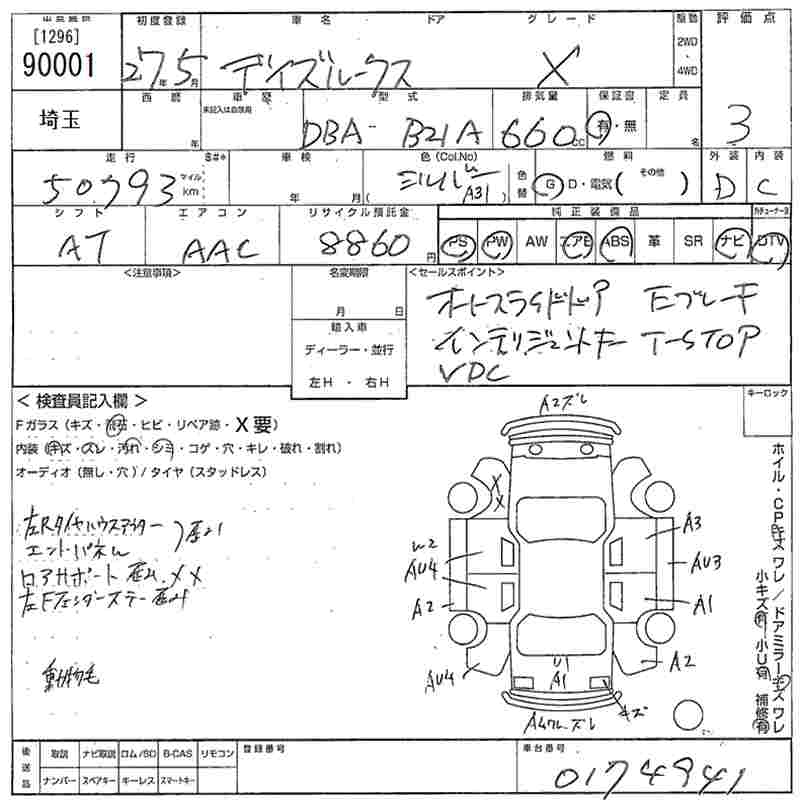 出品番号
[1296]
90001
初度登録
27年5月
車名 ドア グレード
デイズルークス X
駆動
2WD
・
4WD
評価点
3
埼玉
西暦
年
車歴
未記入は自家用
型式
DBA- B21A
排気量
660cc
保証書
有・無
定員
名
走行
50,793
マイル
km
車検
年 月
色(Col.No)
シルバー
(A31)
色替
燃料
G D・電気( その他 )
外装
D
内装
C
シフト
AT
エアコン
AAC
リサイクル預託金
8860円
純正装備品
PS PW AW エアB ABS 革 SR ナビ DTV
<注意事項>
名変期限
月 日
輸入車
ディーラー・並行
左H・右H
<セールスポイント>
オートスライドドア Eブレーキ
インテリジェントキー I-STOP
VDC
<検査員記入欄>
Fガラス(キズ・飛石・ヒビ・リペア跡・X要)
内装(キズ・スレ・汚れ・シミ・コゲ・穴・キレ・破れ・割れ)
オーディオ(無し・穴)/タイヤ(スタッドレス)
左Rタイヤハウスアウター
エンドパネル
凹み
ロアサポート 凹み XX
左Fフェンダーステー凹み
動物毛
キーロック
A2ズレ
X
X
A3
AU4
AU3
A2
A1
U1
A1
AU4
A2
キズ
ホイル・CPキズ ワレ/ドアミラーキズ ワレ
小キズ有 小U有 補修有
後送品
取説 ナビ取説 ロム/SD B-CAS リモコン
ナンバー スペアキー キーレス スマートキー
登録番号
車台番号
0174941